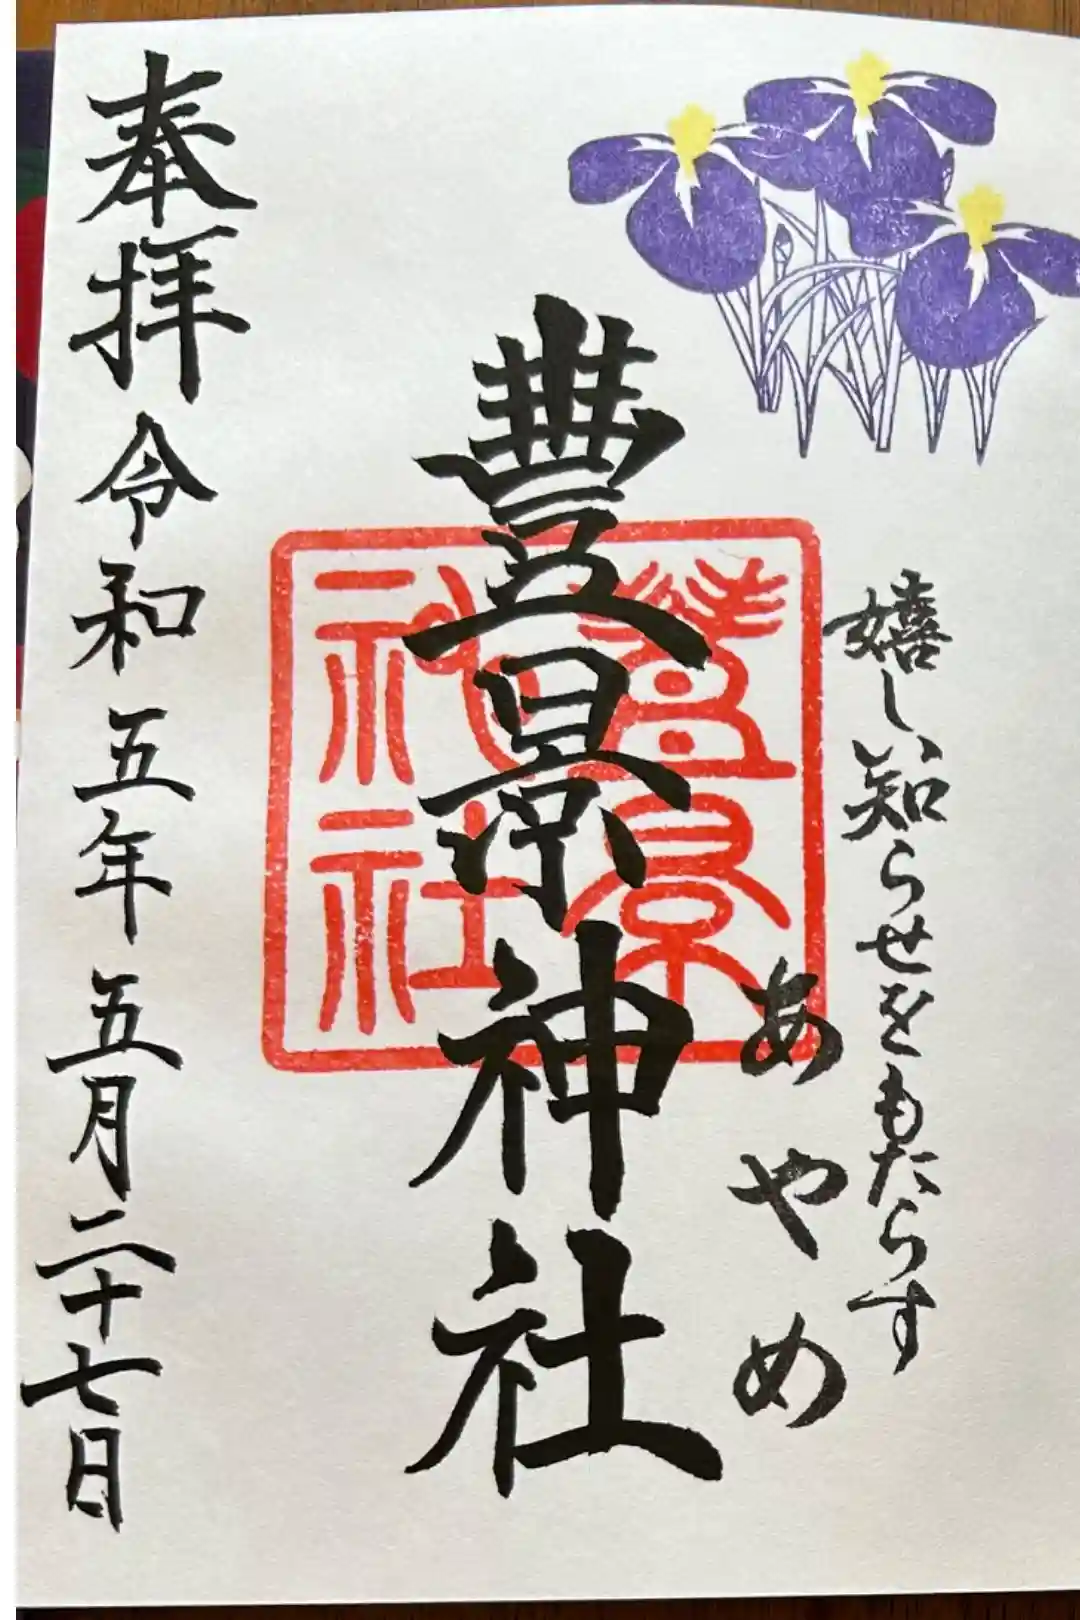 嬉しい知らせをもたらす
あやめ
豊景神社
豊景神社
奉拝 令和五年 五月二十七日